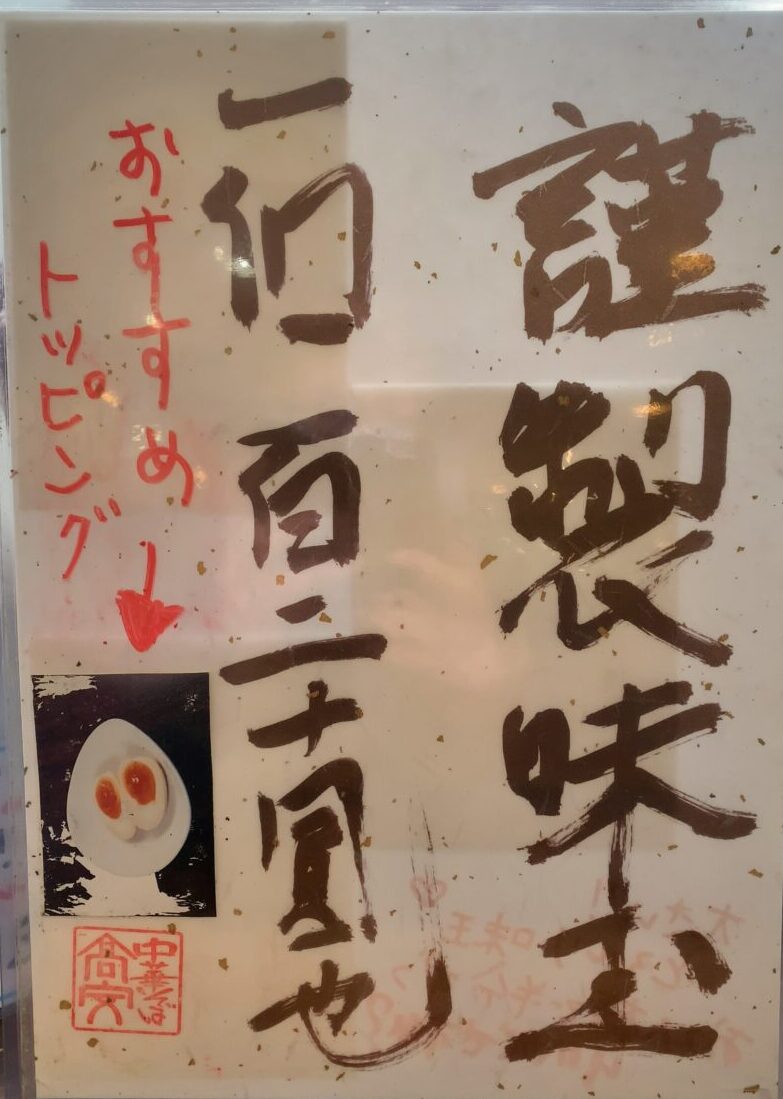 謹製味玉
一個 百二十圓也
おすすめ
トッピング
中華そば
高安